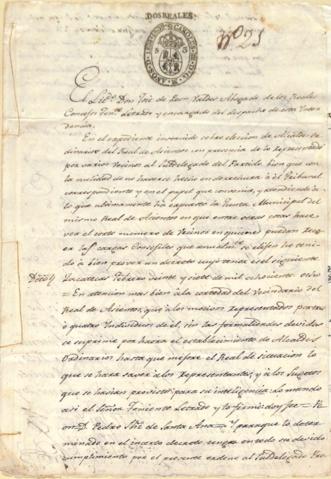 DOS REALES
Nº 21
El Lic.do Don José de Leon Valdes Abogado de los Reales
Consejos Ten.te Letrado y encargado del despacho de esta Inten
dencia
En el expediente instruido sobre eleccion de Alcaldes
ordinarios del Real de Asientos con presencia de lo representado
por varios vecinos al Subdelegado del Partido bien que con
la nulidad de no haverse hecho en derechura á el Tribunal
correspondiente y en el papel que convenia, y atendiendo á
lo que ultimamente ha expuesto la Junta Municipal del
mismo Real de Asientos en que entre otras cosas hace
ver el corto numero de Vecinos en quienes puedan
las cargas Concejiles que
á bien proveer un decreto cuyo tenor es el siguiente
Zacatecas Febrero veinte y siete de mil ochocientos ocho
= En atencion mas bien á la cortedad del Vecindario del
Real de Asientos, que á los meritos representados por tres
ó quatro Individuos de él, sin las formalidades devidas
se suprime por haora el establecimiento de Alcaldes
Ordinarios hasta que mejore el Real de situacion lo
que se hará saver á los Representantes, y á los Sugetos
que se havian previsto para su inteligencia. Lo mandó
así el Señor Teniente Letrado y lo firmó doy fee =
D. Pedro de Santa Ana = Y para que lo deter
minado en el inserto decreto tenga en todo su devido
cumplimiento por el presente ordeno al Subdelegado